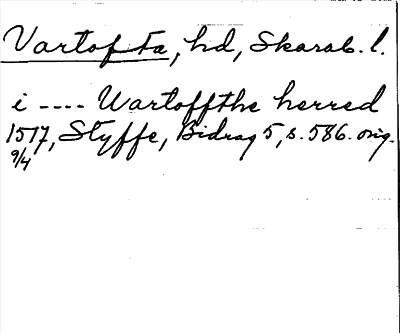 Vartofta, hd, Skarab. l.
i ---- Wartoffthe herred
1517, Styffe, Bidrag 5, s. 586. orig.
9/4